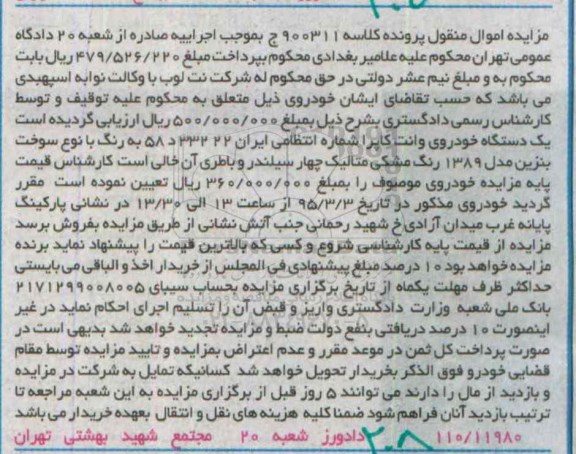 مزایده اموال منقول پرونده کلاسه ۹۰۰۳۱۱ ج بموجب اجراییه صادره از شعبه ۲۰ دادگاه
عمومی تهران محکوم علیه علامیر بغدادی محکوم بپرداخت مبلغ ۴۷۹/۵۲۶/۲۲۰ ریال بابت
محکوم به و مبلغ نیم عشر دولتی در حق محکوم له شرکت نت لوب با وکالت نوابه اسپهبدی
می باشد که حسب تقاضای ایشان خودروی ذیل متعلق به محکوم علیه توقیف و توسط
کارشناس رسمی دادگستری بشرح ذیل بمبلغ ۵۰۰/۰۰۰/۰۰۰ ریال ارزیابی گردیده است
یک دستگاه خودروی وانت کاپرا شماره انتظامی ایران ۲۲ ۳۳۲ د ۵۸ به رنگ با نوع سوخت
بنزین مدل ۱۳۸۹ رنگ مشکی متالیک چهار سیلندر و باطری آن خالی است کارشناس قیمت
پایه مزایده خودروی موصوف را بمبلغ ۳۶۰/۰۰۰/۰۰۰ ریال تعیین نموده است مقرر
گردید خودروی مذکور در تاریخ ۹۵/۳/۳ از ساعت ۱۳ الی ۱۳/۳۰ در نشانی پارکینگ
پایانه غرب میدان آزادی خ شهید رحمانی جنب آتش نشانی از طریق مزایده بفروش برسد
مزایده از قیمت پایه کارشناسی شروع و کسی که بالاترین قیمت را پیشنهاد نماید برنده
مزایده خواهد بود ۱۰ درصد مبلغ پیشنهادی فی المجلس از خریدار اخذ و الباقی می بایستی
حداکثر ظرف مهلت یکماه از تاریخ برگزاری مزایده بحساب سیبای ۲۱۷۱۲۹۹۰۰۸۰۰۵
بانک ملی شعبه وزارت دادگستری واریز و قبض آن را تسلیم اجرای احکام نماید در غیر
اینصورت ۱۰ درصد دریافتی بنفع دولت ضبط و مزایده تجدید خواهد شد بدیهی است در
صورت پرداخت کل ثمن در موعد مقرر و عدم اعتراض بمزایده و تایید مزایده توسط مقام
قضایی خودرو فوق الذکر بخریدار تحویل خواهد شد کسانیکه تمایل به شرکت در مزایده
و بازدید از مال را دارند می توانند ۵ روز قبل از برگزاری مزایده به این شعبه مراجعه تا
ترتیب بازدید آنان فراهم شود ضمنا کلیه هزینه های نقل و انتقال بعهده خریدار می باشد
۱۱۰/۱۱۹۸۰ دادورز شعبه ۲۰ مجتمع شهید بهشتی تهران
۲۰۸